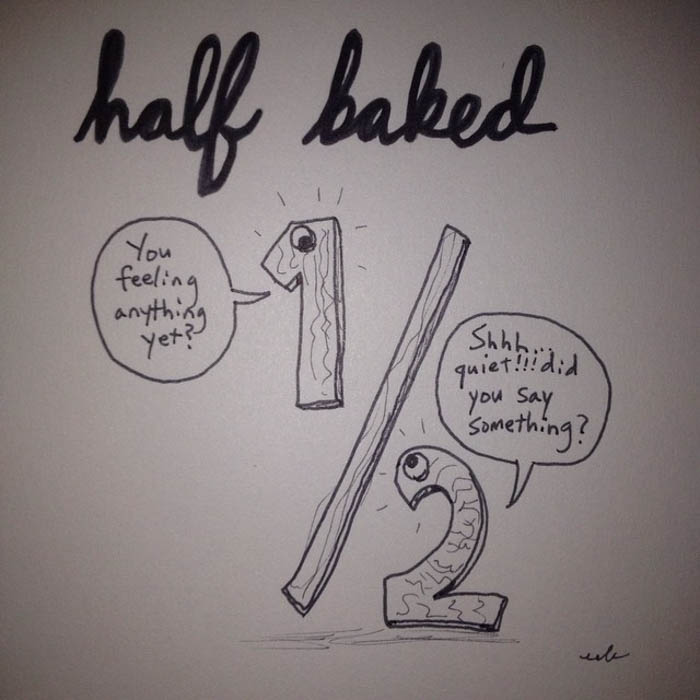 half baked
You
feeling
anything
yet?
1/2
Shhh...
quiet!!! did
you say
something?